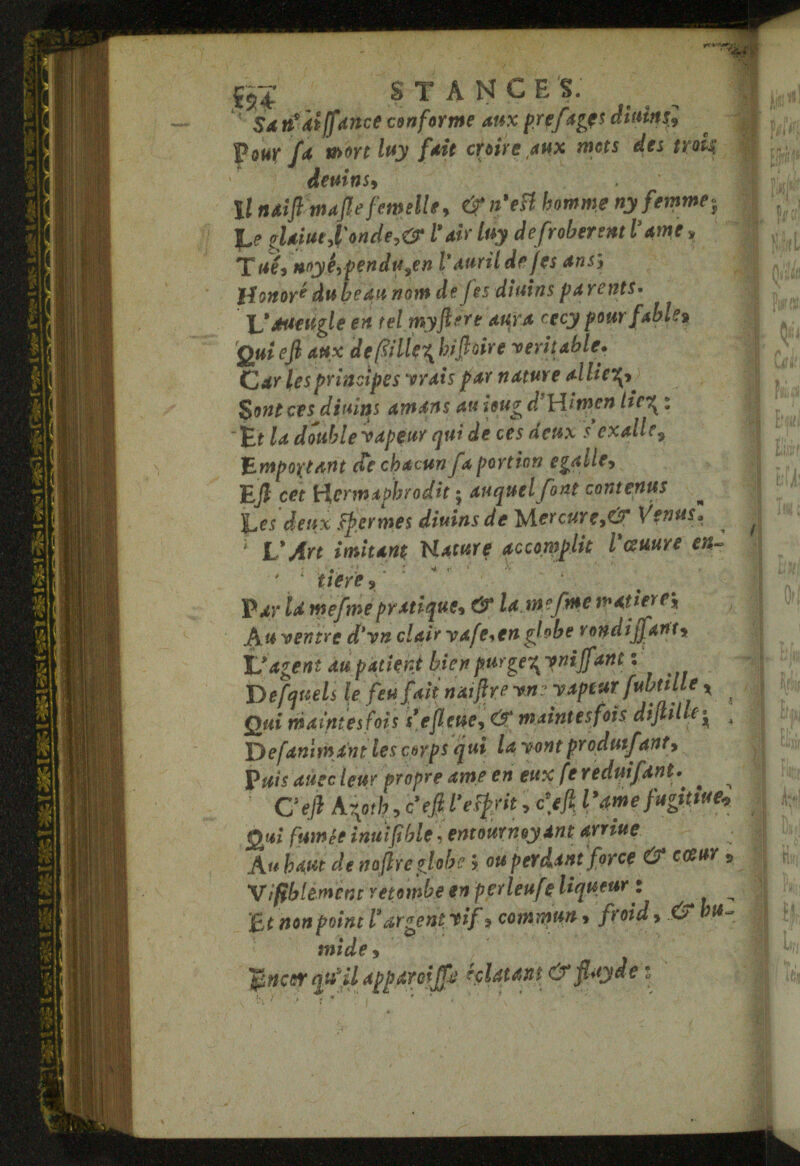 594 STANCES.
Sa n'aissance conforme aux presages diuins,
Pour sa mort luy fait croire aux mots des trois
deuins,
Il naist masle femelle, & n'est homme ny femme;
Le glaiue, l'onde, & l'air luy defroberent l'ame,
Tué, noyé, pendu, en l'auril de ses ans;
Honoré du beau nom de ses diuins parents.
L'aueugle en tel mystere aura cecy pour fable,
Qui est aux dessillez histoire veritable.
Car les principes vrais par nature alliez,
Sont ces diuins amans au ioug d'Himen liez:
Et la double vapeur qui de ces deux s'exalle,
Emportant de chacun sa portion egalle,
Est cet Hermaphrodit; auquel sont contenus
Les deux spermes diuins de Mercure, & Venus.
L'Art imitant Nature accomplit l'œuure en-
tiere,
Par la mesme pratique, & la mesme matiere;
Au ventre d'vn clair vase, en globe rondissant,
L'agent au patient bien purgez vnissant:
Desquels le feu fait naistre vne vapeur subtille,
Qui maintesfois s'esleue, & maintesfois distille;
Desanimant les corps qui la vont produisant,
Puis auec leur propre ame en eux se reduisant.
C'est Azoth, c'est l'esprit, c'est l'ame fugitiue,
Qui fumée inuisible, entournoyant arriue
Au haut de nostre globe; ou perdant force & cœur,
Visiblement retombe en perleuse liqueur:
Et non point l'argent vif, commun, froid, & hu-
mide,
Encor qu'il apparoisse éclatant & fluyde: